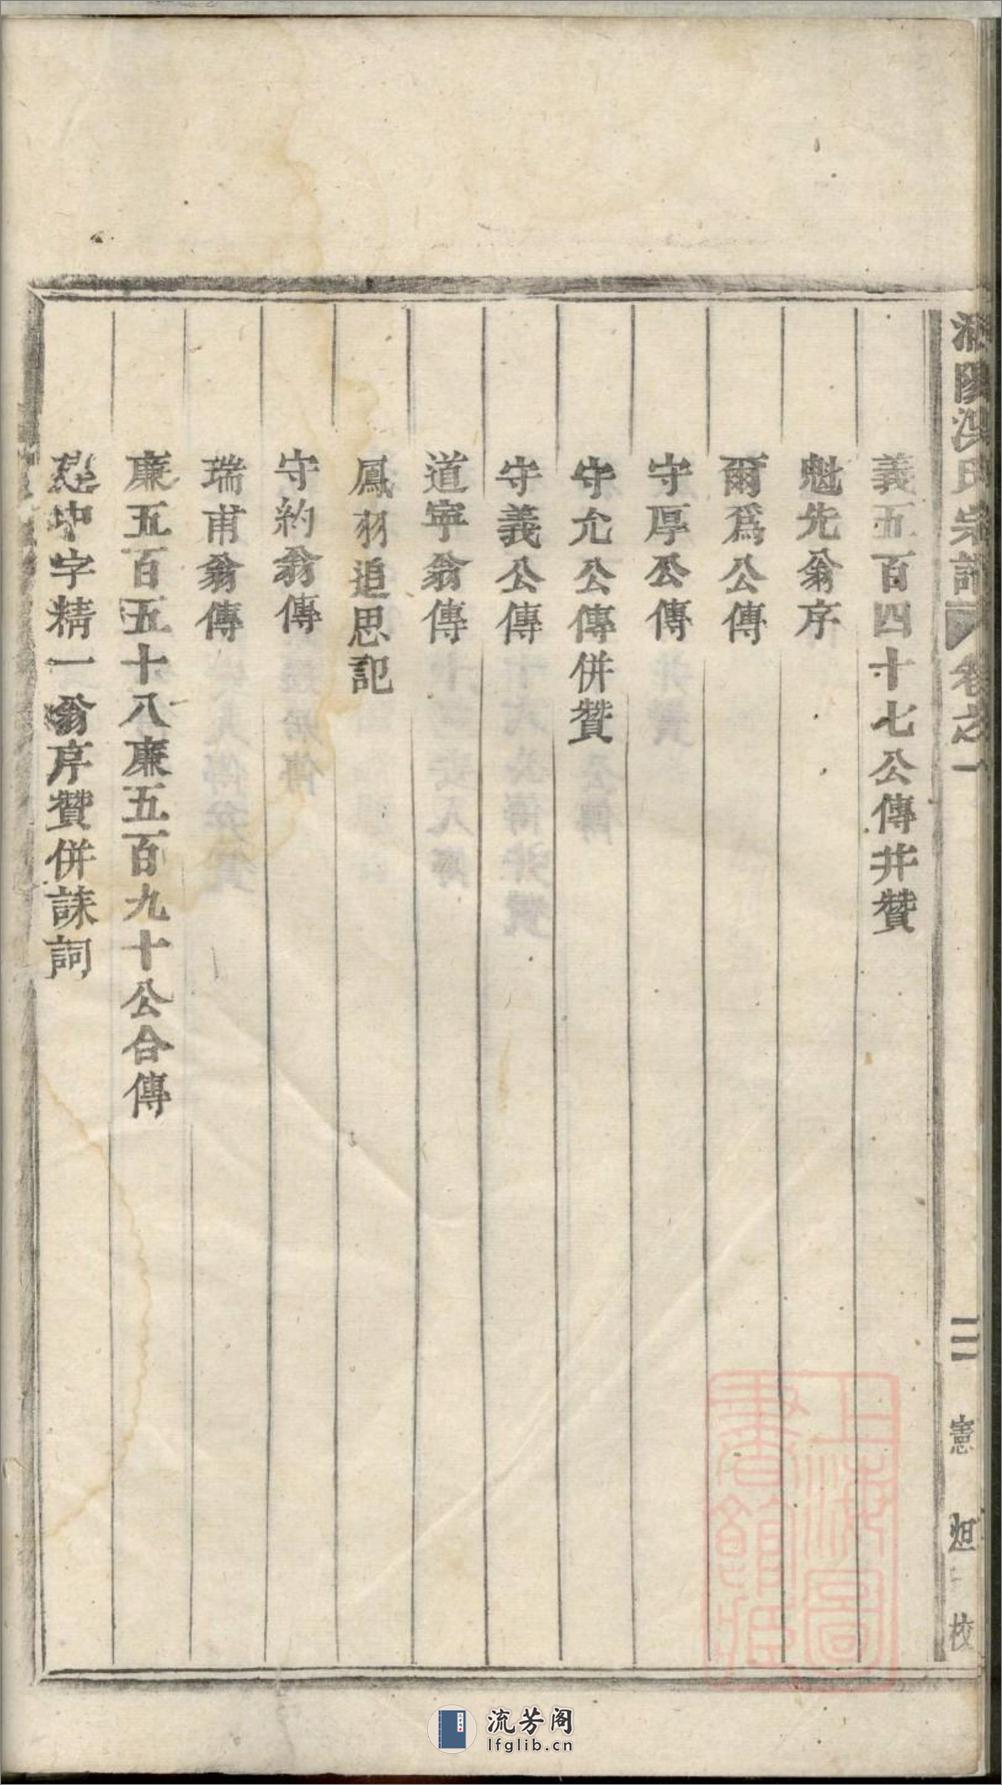 義五百四十七公傳并贊
魁先翁序
爾爲公傳
守厚公傳
守允公傳併贊
守義公傳
道寧翁傳
鳳羽追思記
守約翁傳
瑞甫翁傳
廉五百五十八廉五百九十公合傳
中字精一翁序贊併誄詞
陽洪氏宗譜 卷之一
二 憲 烜 校
上海圖書館藏
流芳阁
lfglib.cn